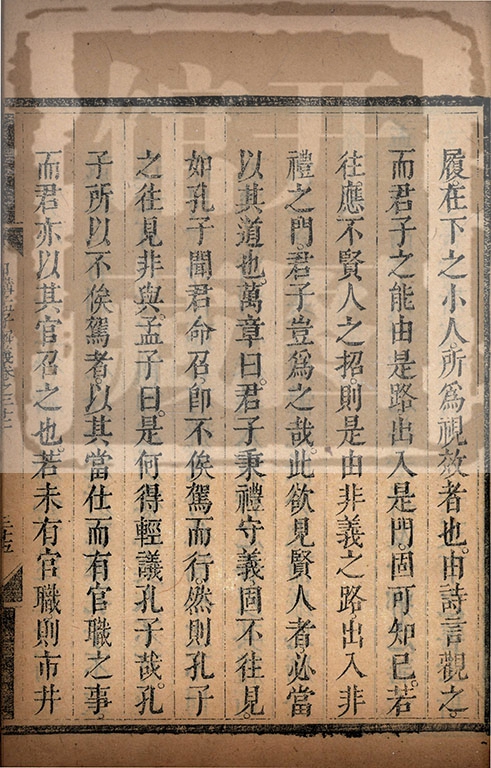 履在下之小人。所爲視效者也。由詩言觀之。
而君子之能由是路出入是門。固可知已。若
往應不賢人之招。則是由非義之路出入非
禮之門。君子豈爲之哉。此欲見賢人者。必當
以其道也。萬章曰。君子秉禮守義。固不往見。
如孔子聞君命召。卽不俟駕而行。然則孔子
之往見非與。孟子曰。是何得輕議孔子哉。孔
子所以不俟駕者。以其當仕而有官職之事。
而君亦以其官召之也。若未有官職則市井